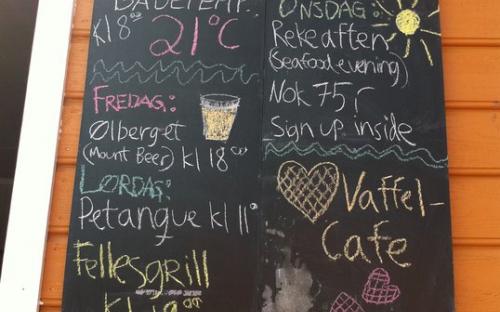 BADETEMP.
Kl 8⁰⁰ 21°C
FREDAG:
Ølberget
(Mount Beer) Kl 18⁰⁰
LØRDAG:
Petanque Kl 11⁰
Fellesgrill
Kl 19⁰⁰
ONSDAG:
Rekeaften
(Seafood evening)
NOK 75,-
Sign up inside
Vaffel-
Cafe